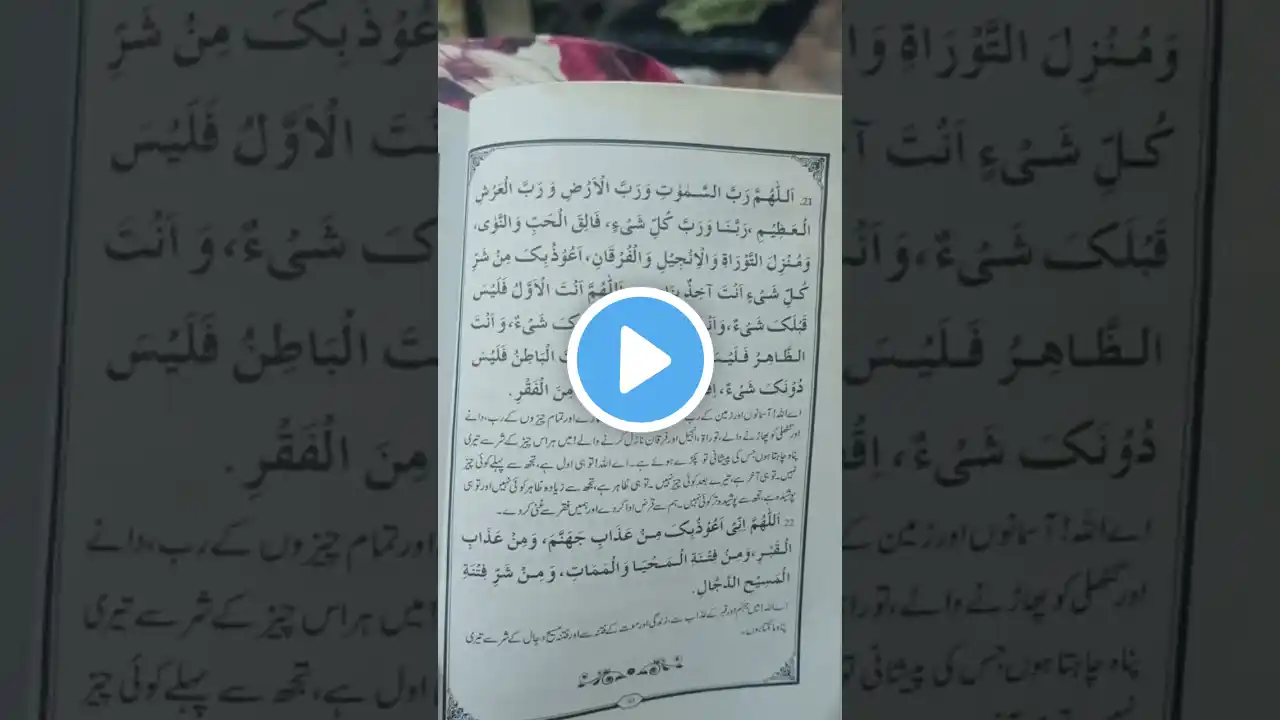 21. اَللّٰهُمَّ رَبَّ السَّمٰوٰتِ وَرَبَّ الْاَرْضِ وَ رَبَّ الْعَرْشِ
الْعَظِيْمِ ،رَبَّنَا وَرَبَّ كُلِّ شَیْءٍ، فَالِقَ الْحَبِّ وَالنَّوٰى،
وَمُنْزِلَ التَّوْرَاةِ وَالْاِنْجِيْلِ وَالْفُرْقَانِ، اَعُوْذُبِکَ مِنْ شَرِّ
كُلِّ شَیْءٍ اَنْتَ آخِذٌ اَللّٰهُمَّ اَنْتَ الْاَوَّلُ فَلَيْسَ
قَبْلَکَ شَیْءٌ، شَیْءٌ، وَ اَنْتَ
الظَّاهِرُ فَلَيْسَ الْبَاطِنُ فَلَيْسَ
دُوْنَکَ شَیْءٌ، مِنَ الْفَقْرِ.
اے اللہ! آسمانوں اور زمین کے رب اور تمام چیزوں کے رب، دانے
اور گٹھلی کو پھاڑنے والے، توراۃ، انجیل اور فرقان نازل کرنے والے! میں ہر اس چیز کے شر سے تیری
پناہ چاہتا ہوں جس کی پیشانی تو پکڑے ہوئے ہے۔ اے اللہ! تو ہی اول ہے، تجھ سے پہلے کوئی چیز
نہیں۔ تو ہی آخر ہے، تیرے بعد کوئی چیز نہیں۔ تو ہی ظاہر ہے، تجھ سے زیادہ ظاہر کوئی نہیں اور تو ہی
پوشیدہ ہے، تجھ سے پوشیدہ تر کوئی نہیں۔ ہم سے قرض ادا کر دے اور ہمیں فقر سے غنی کر دے۔
22. اَللّٰهُمَّ اِنِّیْ اَعُوْذُبِکَ مِنْ عَذَابِ جَهَنَّمَ، وَمِنْ عَذَابِ
الْقَبْرِ،وَمِنْ فِتْنَةِ الْمَحْيَا وَالْمَمَاتِ، وَ مِنْ شَرِّ فِتْنَةِ
الْمَسِيْحِ الدَّجَّالِ.
اے اللہ! میں جہنم اور قبر کے عذاب سے، زندگی اور موت کے فتنہ سے اور فتنہ مسیح دجال کے شر سے تیری
پناہ مانگتا ہوں۔